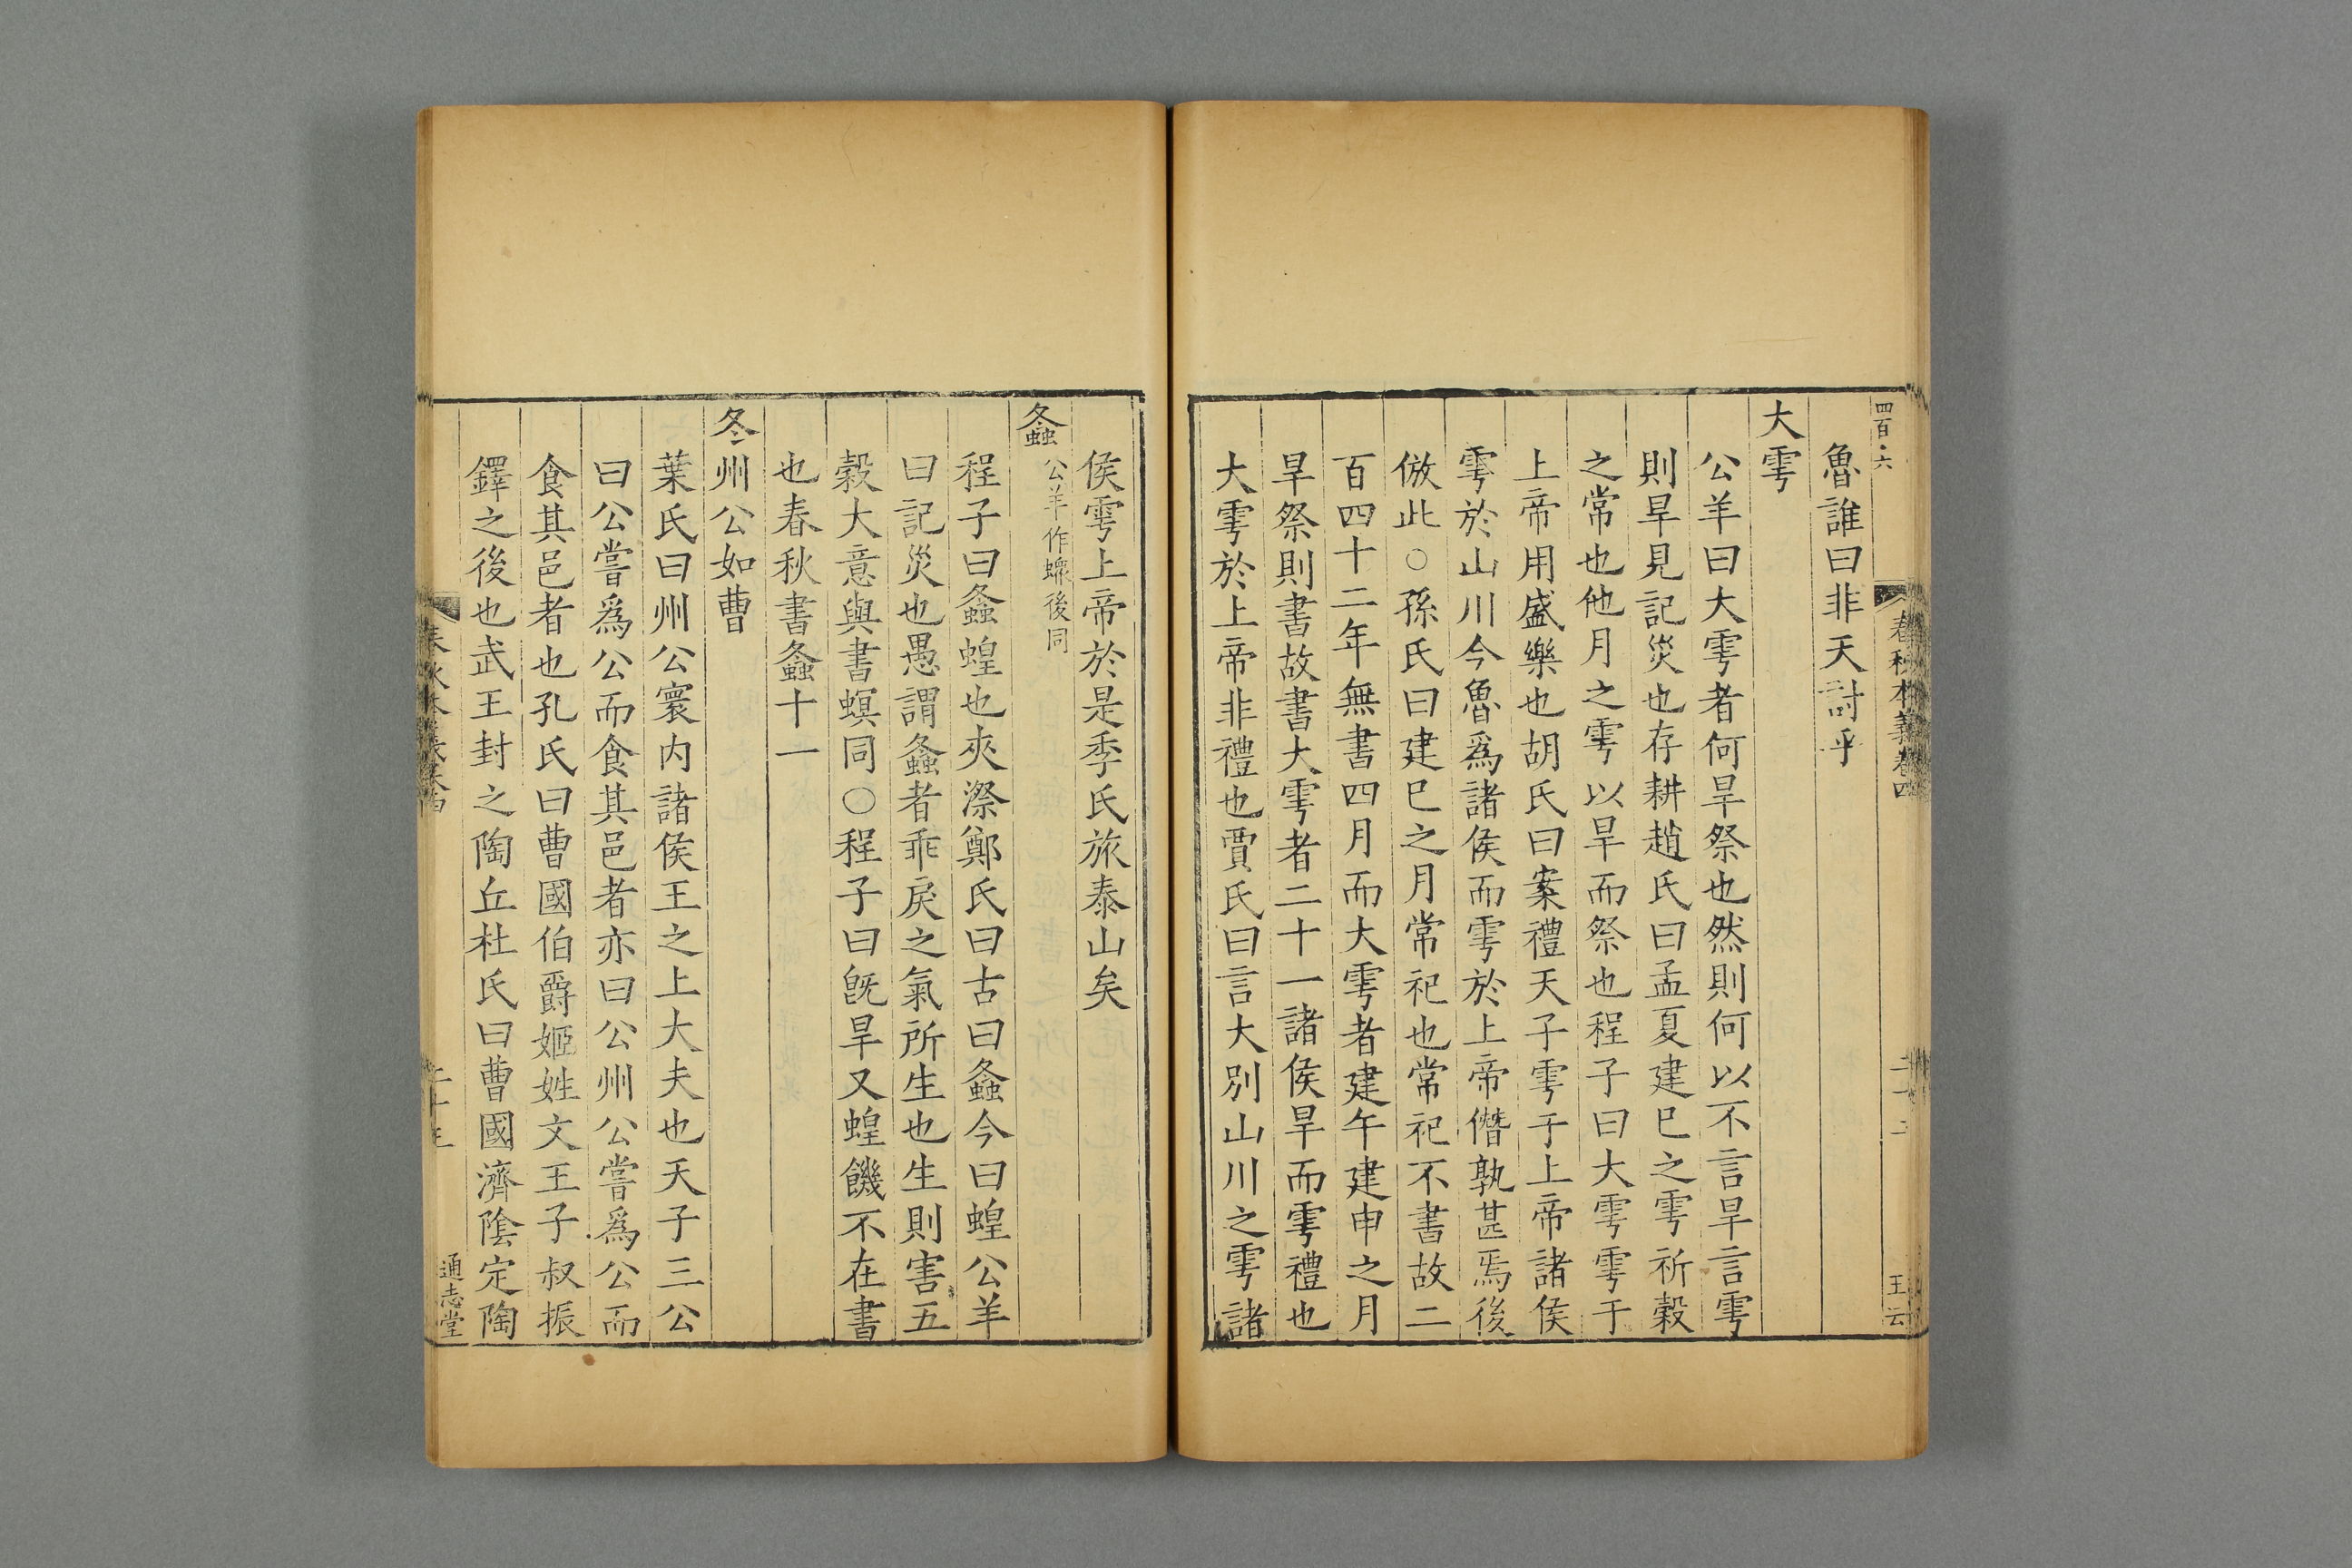 四百六
春秋本義卷四
王云
魯誰曰非天討乎
大雩
公羊曰大雩者何旱祭也然則何以不言旱言雩
則旱見記災也存耕趙氏曰孟夏建巳之雩祈穀
之常也他月之雩以旱而祭也程子曰大雩雩于
上帝用盛樂也胡氏曰案禮天子雩于上帝諸侯
雩於山川今魯爲諸侯而雩於上帝僭孰甚焉後
倣此○孫氏曰建巳之月常祀也常祀不書故二
百四十二年無書四月而大雩者建午建申之月
旱祭則書故書大雩者二十一諸侯旱而雩禮也
大雩於上帝非禮也賈氏曰言大別山川之雩諸
侯雩上帝於是季氏旅泰山矣
螽公羊作蠑後同
程子曰螽蝗也夾漈鄭氏曰古曰螽今曰蝗公羊
曰記災也愚謂螽者乖戾之氣所生也生則害五
穀大意與書螟同○程子曰旣旱又蝗饑不在書
也春秋書螽十一
冬州公如曹
葉氏曰州公寰内諸侯王之上大夫也天子三公
曰公嘗爲公而食其邑者亦曰公州公嘗爲公而
食其邑者也孔氏曰曹國伯爵姬姓文王子叔振
鐸之後也武王封之陶丘杜氏曰曹國濟隂定陶
通志堂